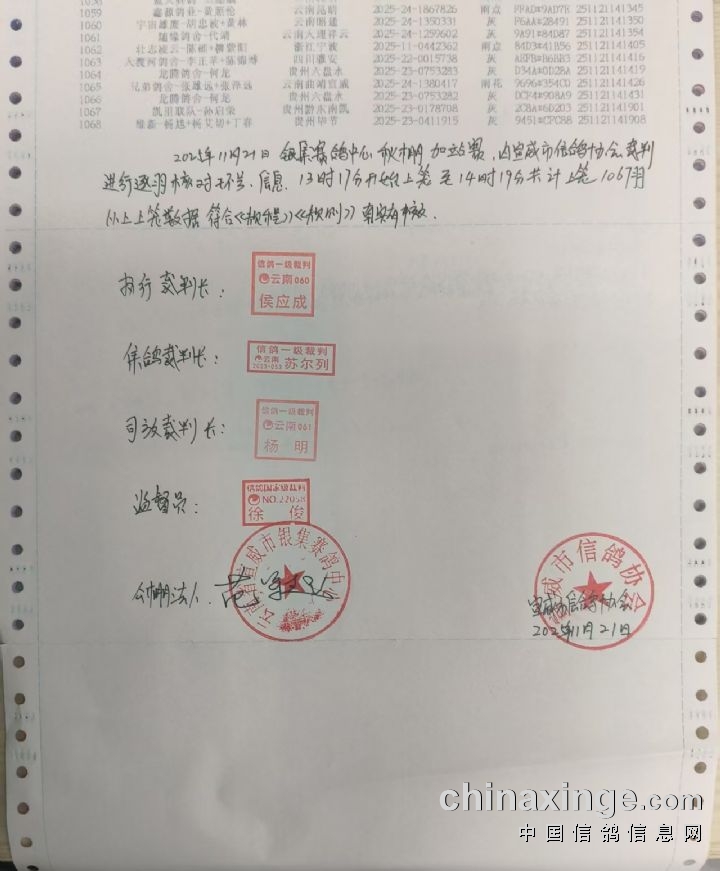 1059 鑫颖鸽业-黄颖伦 云南昆明 2025-24-1867826 雨点 FFAD#9AD7E 251121141345
1060 云南昭通 2025-24-1350331 灰 F6AA#28491 251121141350
1061 随缘鸽舍-代靖 云南大理祥云 2025-24-1259602 灰 9A91#84D87 251121141354
1062 浙江宁波 2025-11-0442362 雨点 84D3#41B56 251121141405
1063 四川雅安 2025-22-0015738 灰 251121141415
1064 龙腾鸽舍-何龙 贵州六盘水 2025-23-0753283 灰 D34A#0D28A 251121141419
1065 云南曲靖宣威 2025-24-1380417 雨花 9696#354CD 251121141426
1066 龙腾鸽舍-何龙 贵州六盘水 2025-23-0753282 灰 DCF4#908A9 251121141431
1067 凯里联队-孙启荣 贵州黔东南凯 2025-23-0178708 灰 2C8A#6D203 251121141901
1068 贵州毕节 2025-23-0411915 灰 9451#CFC8B 251121141908
2025年11月21日 银集赛鸽中心 秋棚 加站赛，由宣威市信鸽协会裁判
进行逐羽核对环号、信息，13时17分开始上笼至14时19分共计上笼1067羽
以上上笼数据 符合《规程》《规则》真实有效．
执行裁判长：
信鸽一级裁判
云南060
侯应成
集鸽裁判长：
信鸽一级裁判
云南
苏尔列
司放裁判长：
信鸽一级裁判
云南061
杨明
监督员：
信鸽国家级裁判
NO.22058
徐俊
公棚法人：
云南省宣威市银集赛鸽中心
宣威市信鸽协会
宣威市信鸽协会
2025年11月21日
chinaxinge.com
中国信鸽信息网